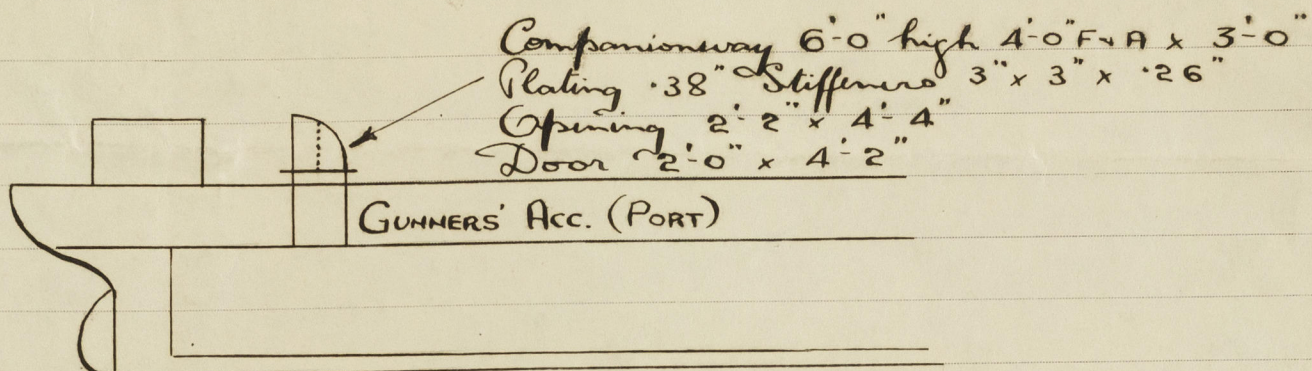 Companionway 6'-0" high 4'-0" F & A x 3'-0"
Plating .38" Stiffeners 3" x 3" x .26"
Opening 2'-2" x 4'-4"
Door 2'-0" x 4'-2"
GUNNERS' ACC. (PORT)